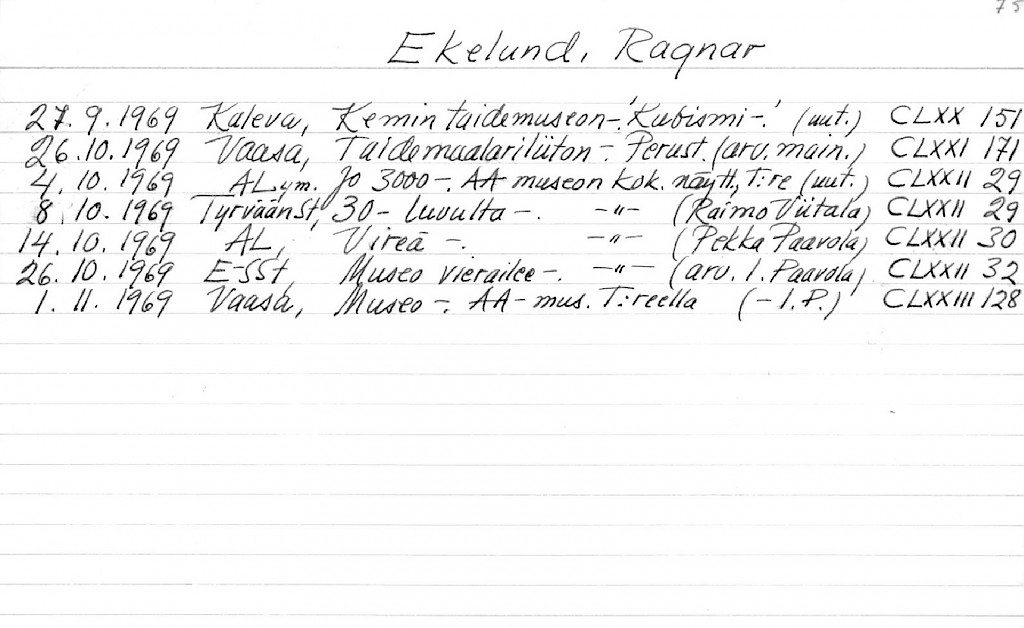 75
Ekelund, Ragnar
27. 9. 1969 Kaleva, Kemin taidemuseon-. 'Kubismi-.' (uut.) CLXX 151
26.10. 1969 Vaasa, Taidemaalariliiton-. Perust. (arv. main.) CLXXI 171
4. 10. 1969 AL ym. Jo 3000-. AA museon kok. näytt, T:re (uut.) CLXXII 29
8. 10. 1969 TyrväänSt, 30-luvulta-. -"- (Raimo Viitala) CLXXII 29
14. 10. 1969 AL, Vireä -. -"- (Pekka Paavola) CLXXII 30
26. 10. 1969 E-SSt, Museo vierailee-. -"- (arv. I. Paavola) CLXXII 32
1. 11. 1969 Vaasa, Museo-. AA-mus. T:reella (-I.P.) CLXXIII 128